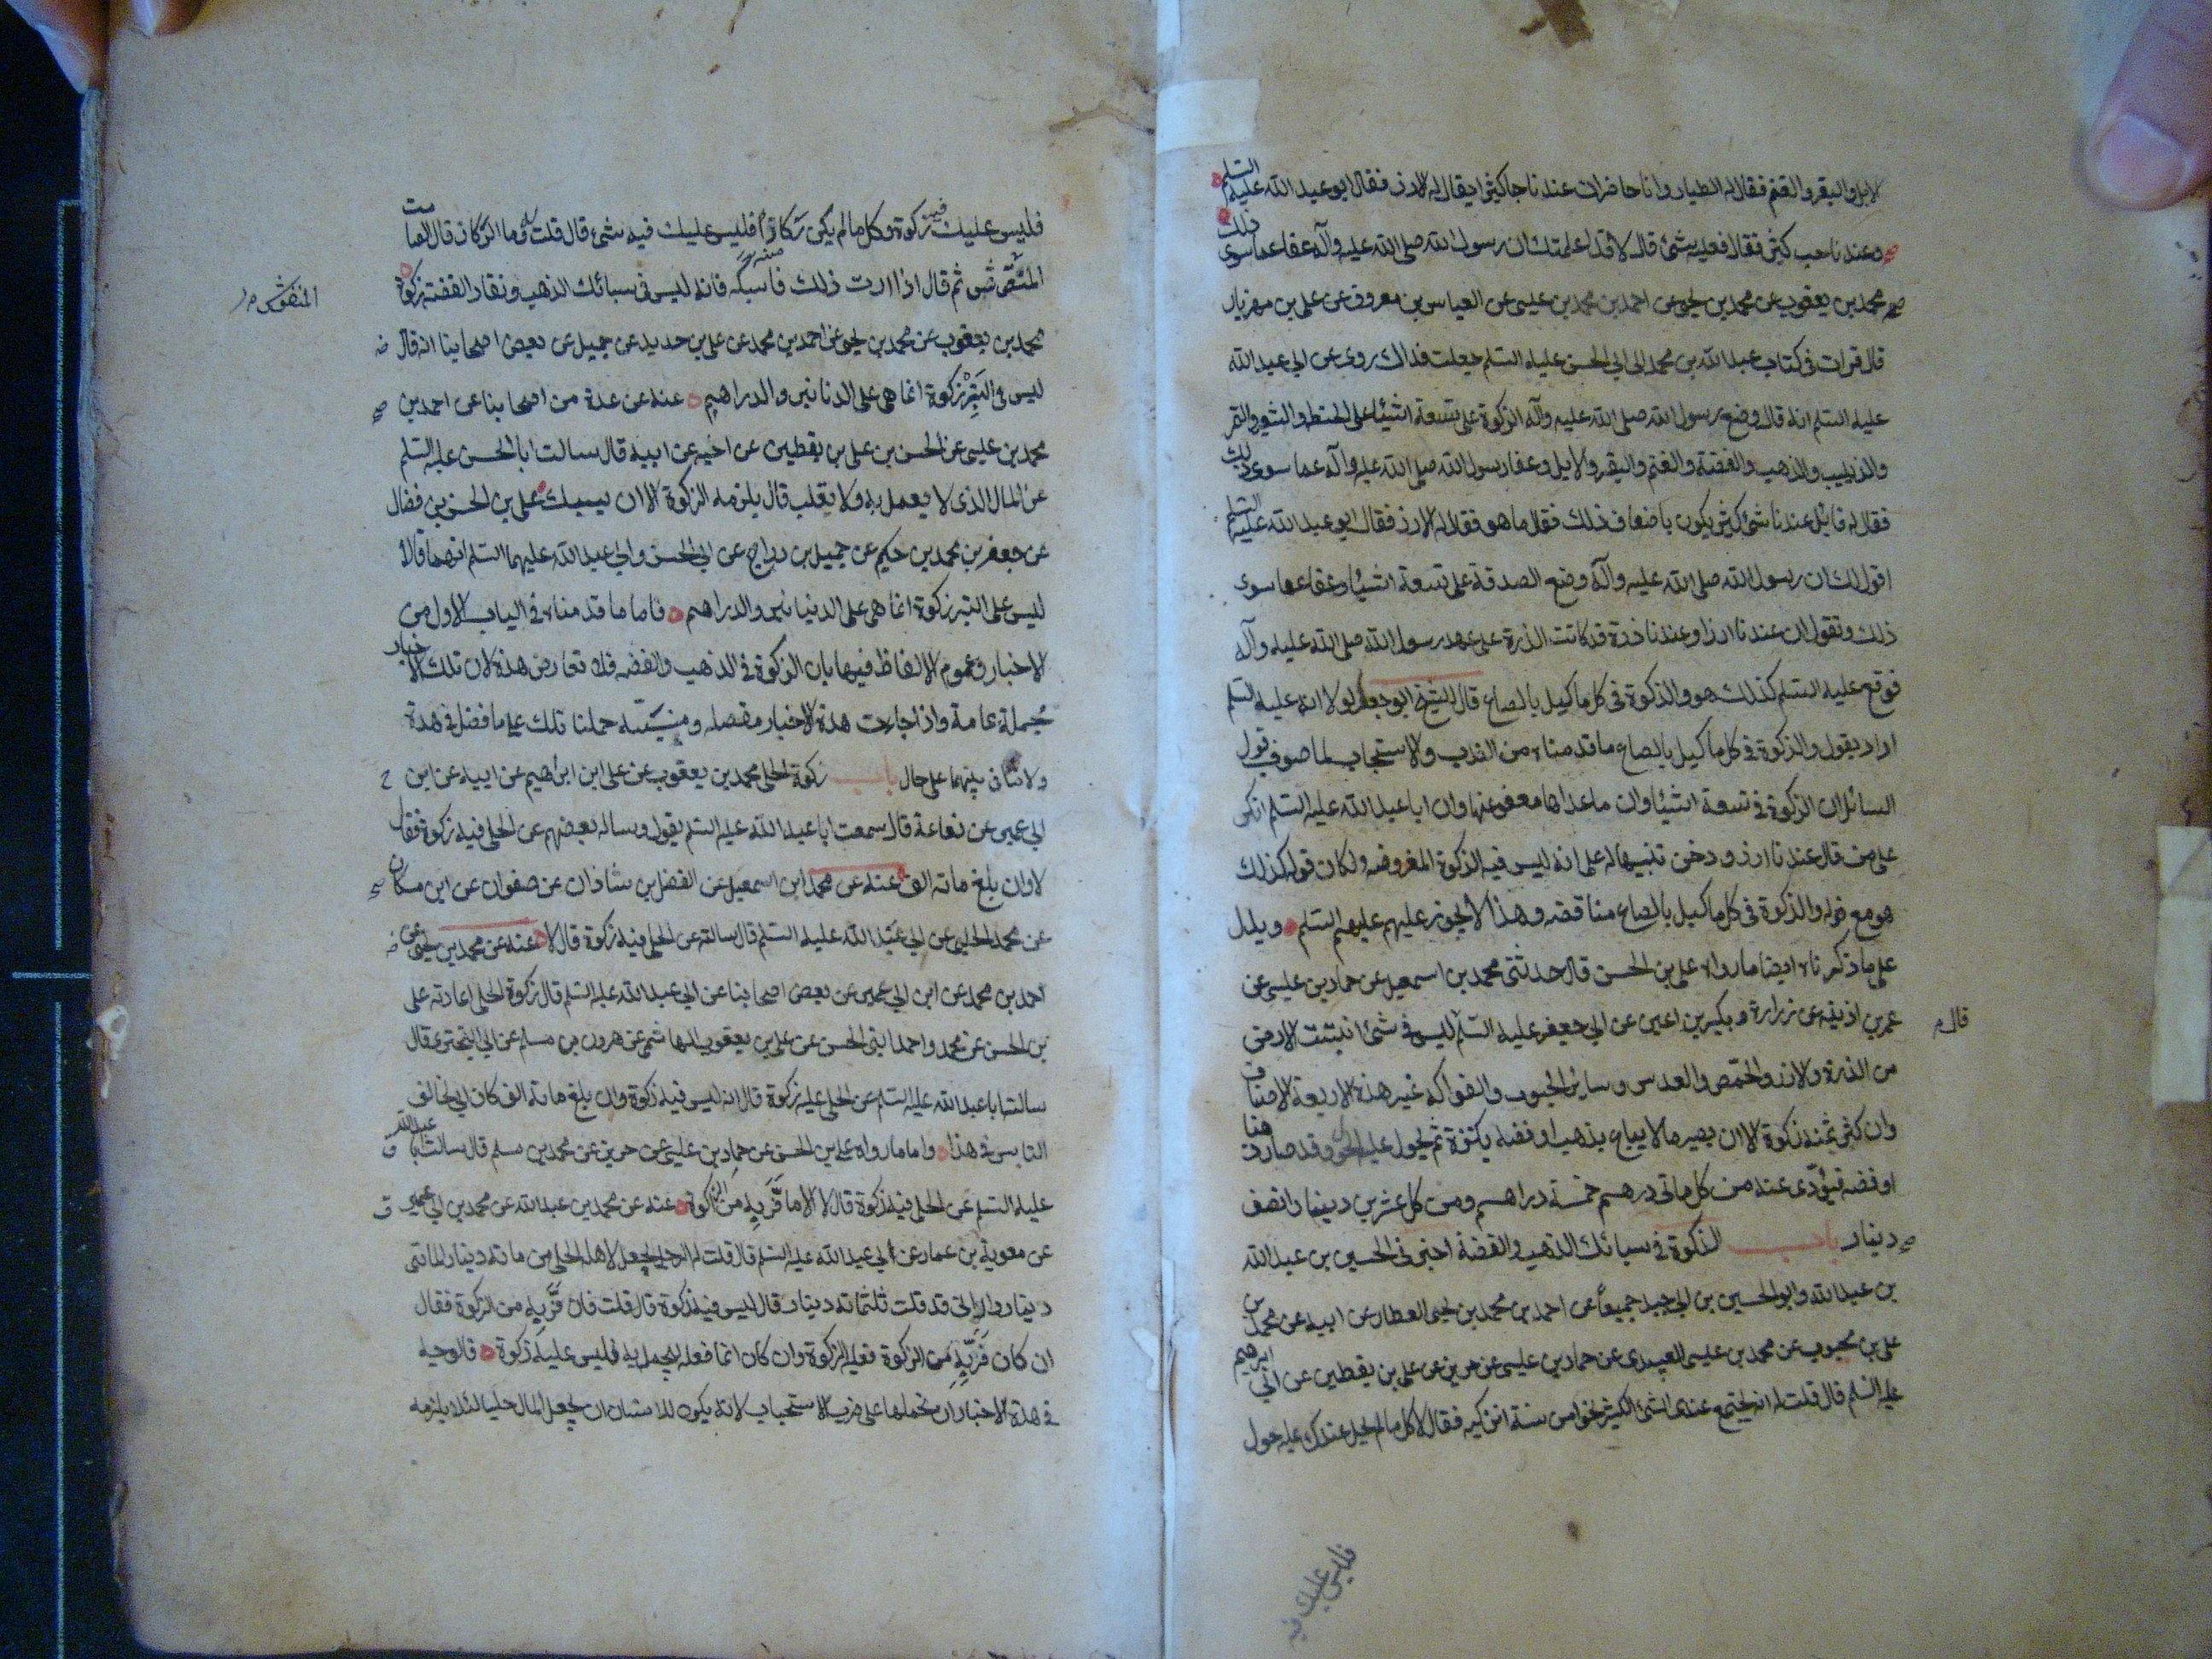 الابل والبقر والغنم فقال له الطيار وانا حاضر ان عندنا حبا كثيرا يقال له الارز فقال ابو عبد الله عليه السلم
وعندنا حب كثير فقال فعليه شئ قال لا قد اعلمتك ان رسول الله صلى الله عليه وآله عفا عما سوى ذلك
محمد بن يعقوب عن محمد بن يحيى عن احمد بن محمد بن عيسى عن العباس بن معروف عن على بن مهزيار
قال قرات فى كتاب عبد الله بن محمد الى ابى الحسن عليه السلم جعلت فداك روى عن ابى عبد الله
عليه السلم انه قال وضع رسول الله صلى الله عليه وآله الزكوة على تسعة اشيئا على الحنطة والشعير والتمر
والزبيب والذهب والفضة والغنم والبقر والابل وعفا رسول الله صلى الله عليه وآله عما سوى ذلك
فقال له قايل عندنا شئ كثير يكون باضعاف ذلك فقال ما هو فقال له الارز فقال ابو عبد الله عليه السلم
اقول لك ان رسول الله صلى الله عليه وآله وضع الصدقة على تسعة اشيئا وعفا عما سوى
ذلك وتقول ان عندنا ارزا وعندنا ذرة قد كانت الذرة على عهد رسول الله صلى الله عليه وآله
فوقع عليه السلم كذلك هو والزكوة فى كل ما كيل بالصاع قال الشيخ ابو جعفر لولا انه عليه السلم
اراد بقول والزكوة فى كل ما كيل بالصاع ما قدمناه من الندب والاستحباب لما صوب قول
السائل ان الزكوة فى تسعة اشيئا وان ما عداها معفو عنها وان ابا عبد الله عليه السلم انكر
على من قال عندنا ارز ودخن تنبيها له على انه ليس فيه الزكوة المفروضه ولكان قوله كذلك
هو مع قوله والزكوة فى كل ما كيل بالصاع مناقضه وهذا لا يجوز عليهم عليهم السلم ويدل
على ما ذكرناه ايضا ما رواه على بن الحسن قال حدثنى محمد بن اسمعيل عن حماد بن عيسى عن
عمر بن اذينه عن زرارة وبكير بن اعين عن ابى جعفر عليه السلم ليس فى شئ انبتت الارض
قال م
من الذرة والارز والحمص والعدس وساير الحبوب والفواكه غير هذه الاربعة الاصناف
وان كثر ثمنه زكوة الا ان يصير مالا يباع بذهب او فضه يكنزه ثم يحول عليه الحول وقد صار ذهبا
او فضه فيؤدى عنه من كل ماتى درهم خمسة دراهم ومن كل عشرين دينارا نصف
دينار باب الزكوة فى سبائك الذهب والفضة اخبرنى الحسين بن عبيد الله
بن عبيد الله وابو الحسين بن ابى جيد جميعا عن احمد بن محمد بن يحيى العطار عن ابيه عن محمد بن
على بن محبوب عن محمد بن عيسى العبيدى عن حماد بن عيسى عن حريز عن على بن يقطين عن ابى ابرهيم
عليه السلم قال قلت له انه يجتمع عندى الشئ الكثير نحوا من سنة انزكيه فقال لا كل ما لم يحل عندك عليه حول
فليس عليك فيه
فليس عليك فيه زكوة وكل ما لم يكن ركازا فليس عليك فيه شئ قال قلت له وما الركاز قال الصامت
المنقوض ثم قال اذا اردت ذلك فاسبكه فانه ليس فى سبائك الذهب ونقار الفضة زكوة
المنقوش م
محمد بن يعقوب عن محمد بن يحيى عن احمد بن محمد عن على بن حديد عن جميل عن بعض اصحابنا انه قال
ليس فى التبر زكوة انما هى على الدنانير والدراهيم عنه عن عدة من اصحابنا عن احمد بن
محمد بن عيسى عن الحسن بن على بن يقطين عن اخيه عن ابيه قال سالت ابا الحسن عليه السلم
عن المال الذى لا يعمل به ولا يقلب قال يلزمه الزكوة الا ان يسبك على بن الحسن بن فضال
عن جعفر بن محمد بن حكيم عن جميل بن دراج عن ابى الحسن وابى عبد الله عليهما السلم انهما قالا
ليس على التبر زكوة انما هى على الدنيانير والدراهم فاما ما قدمناه فى الباب الاول من
الاخبار وعموم الالفاظ فيها بان الزكوة فى الذهب والفضه فلا تعارض هذه لان تلك الاخبار
مجملة عامة واذا جاءت هذة الاخبار مفصله ومبينه حملنا تلك على ما فصل فى هذة
ولا تنافى بينهما على حال باب زكوة الحلى محمد بن يعقوب عن على ابن ابرٰهيم عن ابيه عن ابن
ابى عمير عن رفاعة قال سمعت ابا عبد الله عليه السلم يقول وساله بعضهم عن الحلى فيه زكوة فقال
لا وان بلغ مائه الف عنه عن محمد ابن اسمعيل عن الفضل بن شاذان عن صفوان عن ابن مسكان
عن محمد الحلبى عن ابى عبد الله عليه السلم قال سالته عن الحلى فيه زكوة قال لا عنه عن محمد بن يحيى عن
احمد بن محمد عن ابن ابى عمير عن بعض اصحابنا عن ابى عبد الله عليه السلم قال زكوة الحلى اعارته على
بن الحسن عن محمد واحمد ابنى الحسن عن على بن يعقوب الهاشمى عن هرون بن مسلم عن ابى البخترى قال
سالت ابا عبد الله عليه السلم عن الحلى عليه زكوة قال انه ليس فيه زكوة وان بلغ مائة الف كان ابى يخالف
الناس فى هذا واما ما رواه على بن الحسن عن حماد بن عيسى عن حريز عن محمد بن مسلم قال سالت ابا عبد الله
عليه السلم عن الحلى فيه زكوة قال لا الا ما فر به من الزكوة عنه عن محمد بن عبد الله عن محمد بن ابى عمير
عن معوية بن عمار عن ابى عبد الله عليه السلم قال قلت له الرجل يجعل لاهله الحلى من مائه دينار والمائتى
دينار وارانى قد قلت ثلثمائه دينار قال ليس فيه زكوة قال قلت فان فر به من الزكوة فقال
ان كان فر به من الزكوة فعليه الزكوة وان كان انما فعله ليجمل به فليس عليه زكوة فالوجه
فى هذة الاخبار ان نحملها على ضرب الاستحباب لانه يكون للانسان ان يجعل المال حليا لئلا يلزمه